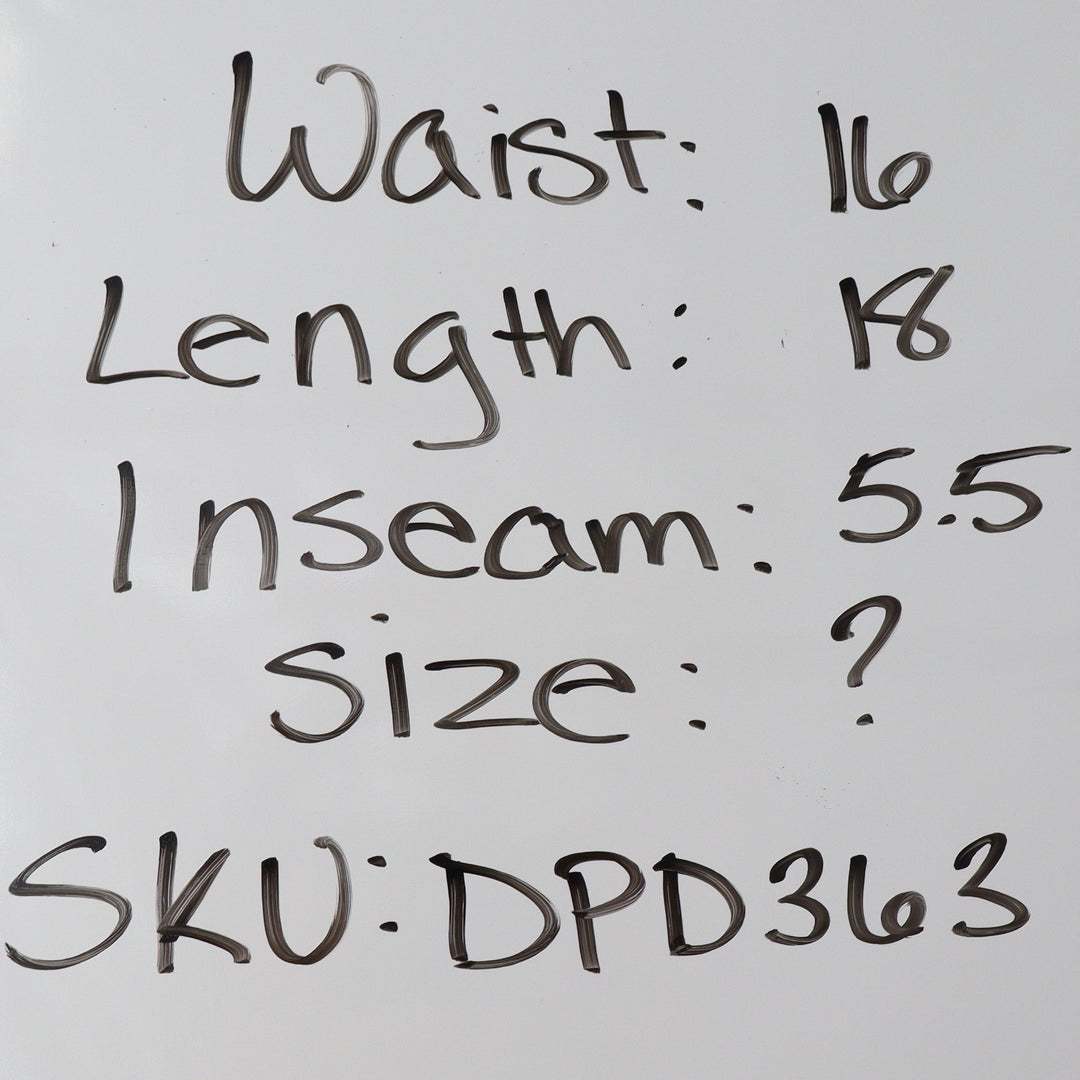 Waist: 16
Length: 18
Inseam: 5.5
Size: ?
SKU: DPD363